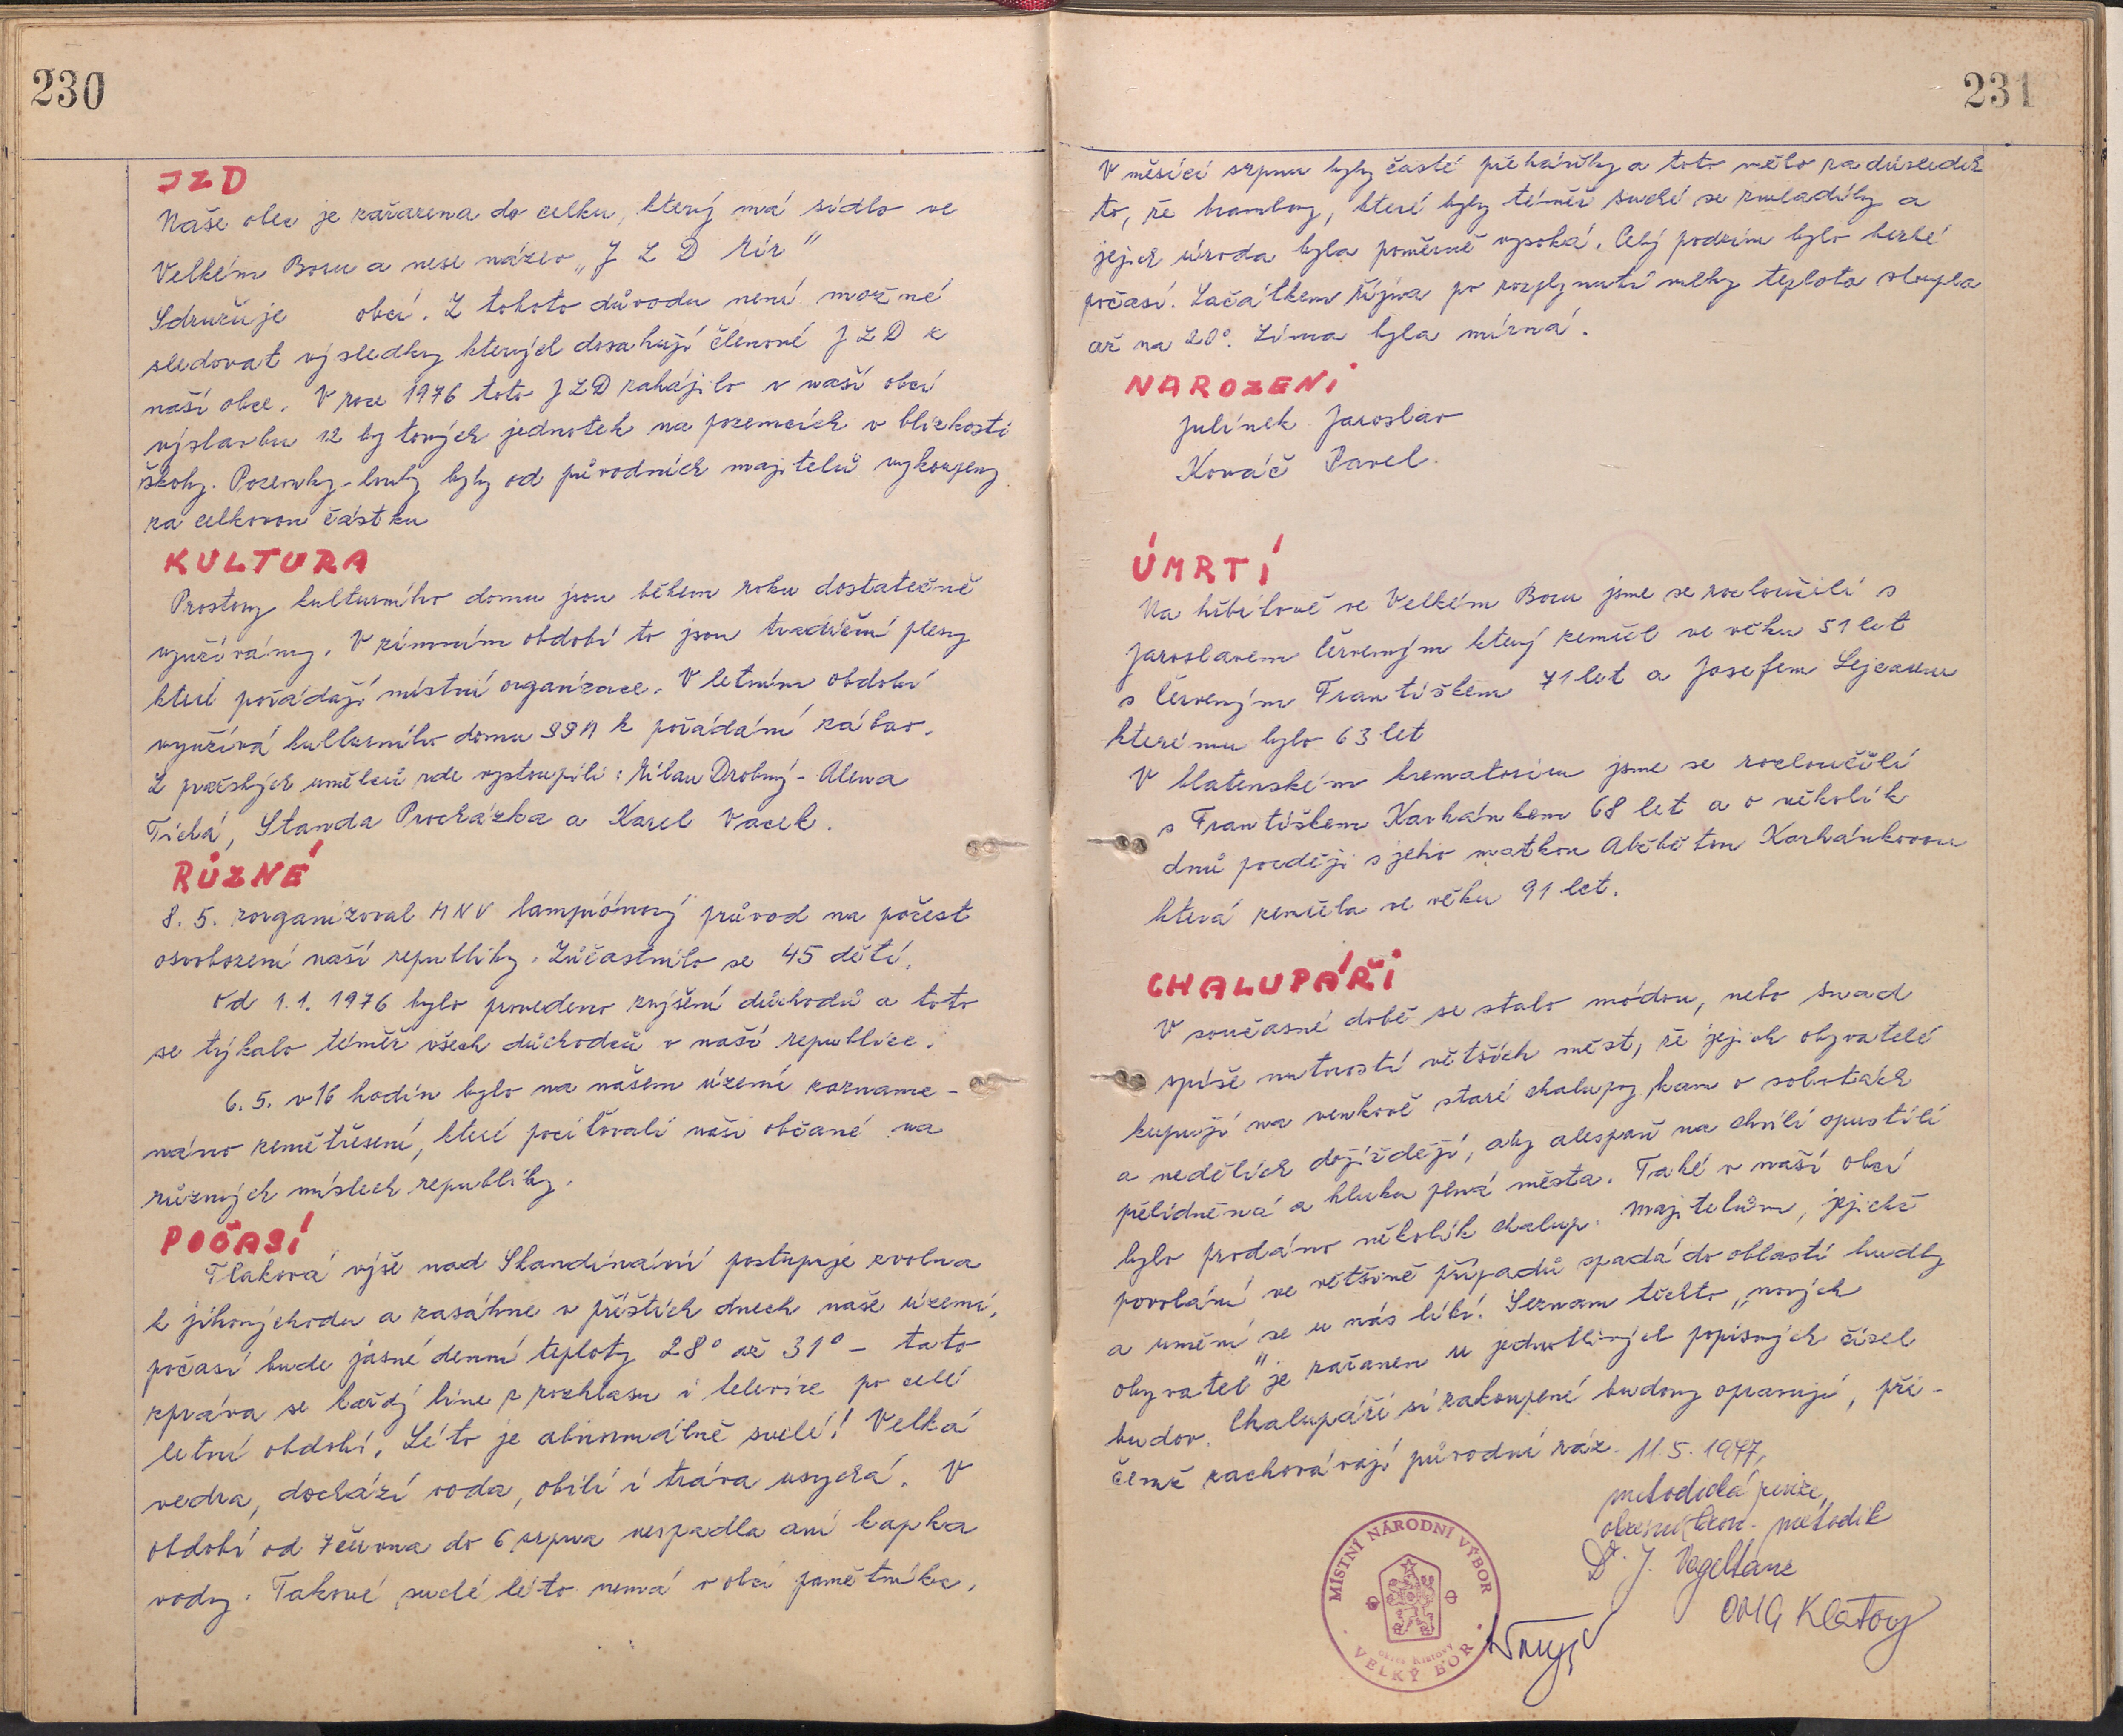 230
JZD
Naše obec je zařazena do celku, který má sídlo ve
Velkém Boru a nese název „J Z D Mír"
Sdružuje obcí. Z tohoto důvodu není možné
sledovat výsledky kterých dosahují členové JZD z
naší obce. V roce 1976 toto JZD zahájilo v naší obci
výstavbu 12 bytových jednotek na pozemcích v blízkosti
školy. Pozemky-louky byly od původních majitelů vykoupeny
za celkovou částku
KULTURA
Prostory kulturního domu jsou během roku dostatečně
využívány. V zimním období to jsou tradiční plesy
které pořádají místní organizace. V letním období
využívá kulturního domu SSM k pořádání zábav.
Z pražských umělců zde vystoupili: Milan Drobný - Alena
Tichá, Standa Procházka a Karel Vacek.
RŮZNÉ
8. 5. zorganizoval MNV lampiónový průvod na počest
osvobození naší republiky. Zúčastnilo se 45 dětí.
Od 1.1. 1976 bylo provedeno zvýšení důchodů a toto
se týkalo téměř všech důchodců v naší republice.
6. 5. v 16 hodin bylo na našem území zazname-
náno zemětřesení, které pociťovali naši občané na
různých místech republiky.
POČASÍ
Tlaková výše nad Skandinávií postupuje zvolna
k jihovýchodu a zasáhne v příštích dnech naše území,
počasí bude jasné denní teploty 28° až 31° - tato
zpráva se každý line z rozhlasu i televize po celé
letní období. Léto je abnormálně suché! Velká
vedra, dochází voda, obilí i tráva usychá. V
období od 7 června do 6 srpna nespadla ani kapka
vody. Takové suché léto nemá v obci pamětníka.
231
V měsíci srpnu byly časté přeháňky a toto mělo za důsledek
to, že brambory, které byly téměř suché se zmladily a
jejich úroda byla poměrně vysoká. Celý podzim bylo hezké
počasí. Začátkem října po rozplynutí mlhy teplota stoupla
až na 20°. Zima byla mírná.
NAROZENI
Julínek Jaroslav
Kováč Pavel.
ÚMRTÍ
Na hřbitově ve Velkém Boru jsme se rozloučili s
Jaroslavem Červeným který zemřel ve věku 51 let
s Červeným Františkem 71 let a Josefem
kterému bylo 63 let
V blatenském krematoriu jsme se rozloučili
s Františkem Karhánkem 68 let a o několik
dnů později s jeho matkou Alžbětou Karhánkovou
která zemřela ve věku 91 let.
CHALUPÁŘI
V současné době se stalo módou, nebo snad
spíše nutností větších měst, že jejich obyvatelé
kupují na venkově staré chalupy, kam o sobotách
a nedělích dojíždějí, aby alespoň na chvíli opustili
přelidněná a hluku plná města. Také v naší obci
bylo prodáno několik chalup. Majitelům, jejichž
povolání ve většině případů spadá do oblasti hudby
a umění se u nás líbí. Seznam těchto „nových
obyvatel" je zařazen u jednotlivých popisných čísel
budov. Chalupáři si zakoupené budovy opravují, při-
čemž zachovávají původní ráz. 11. 5. 1977,
metodik
Dr. J.
Klatovy
MÍSTNÍ NÁRODNÍ VÝBOR
okres Klatovy
VELKÝ BOR